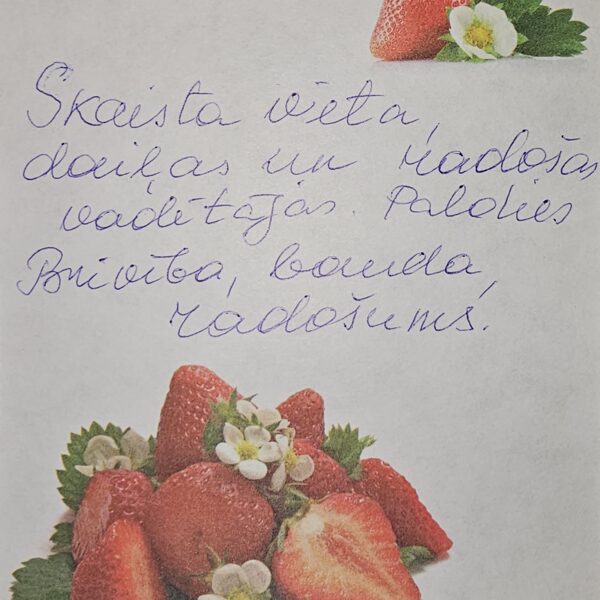 Skaista vieta,
daiļas un radošas
vadītājas. Paldies
Brīvība, bauda,
radošums.